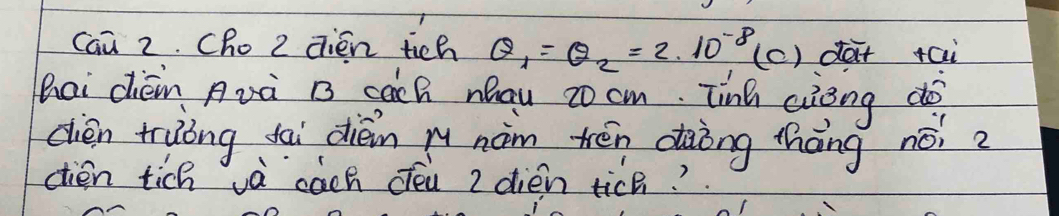 Câu 2. Cho 2 điện tích Q₁ = Q₂ = 2.10⁻⁸ (C) đặt tại
hai điểm A và B cách nhau 20 cm. Tính cường độ
điện trường tại điểm M nằm trên đường thẳng nối 2
điện tích và cách đều 2 điện tích ?.